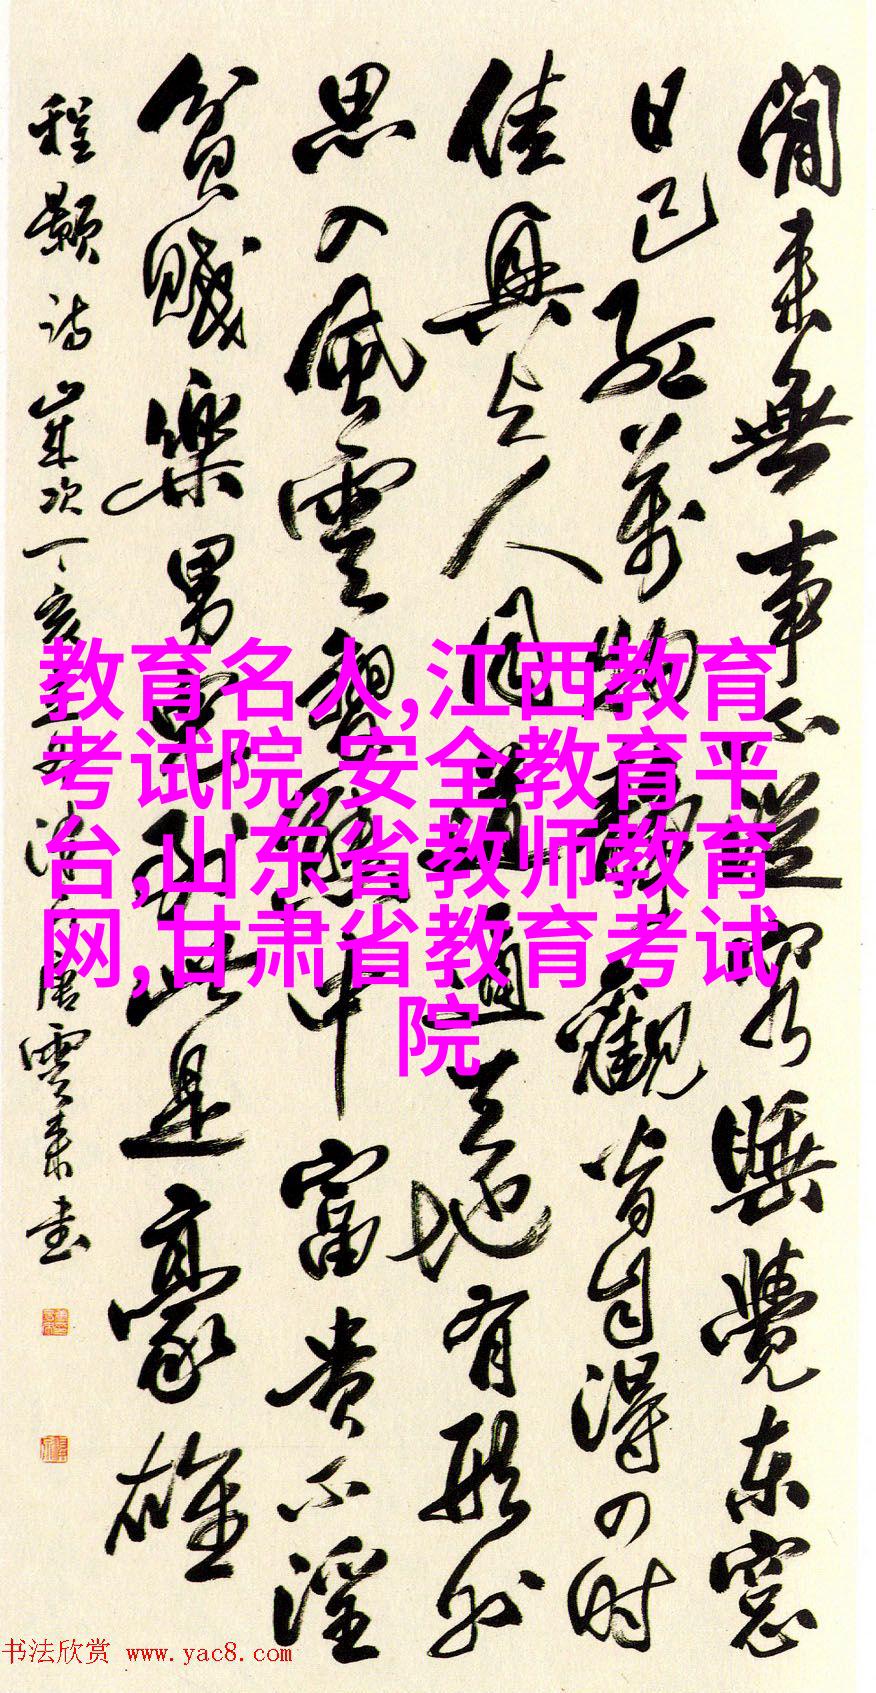 閒来無事不從容睡覺东窓
日已红萬物靜觀皆自得四时
佳興与人同道通天地有形外
思入風雲變態中富貴不淫
貧賤樂男兒到此是豪雄
程颢诗歲次丁亥唐雲来书
教育名人,江西教育
考试院,安全教育平
台,山东省教师教育
网,甘肃省教育考试
院
书法欣赏 www.yac8.com